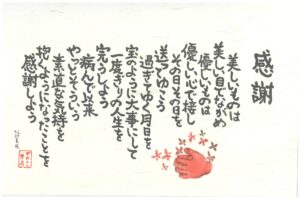 感謝
美しいものは
美しい目でながめ
優しいものは
優しい心で接し
その日その日を
送ってゆこう
過ぎてゆく月日を
宝のように大事にして
一度きりの人生を
完うしよう
病んで以来
やっとそういう
素直な気持を
抱くようになったことを
感謝しよう